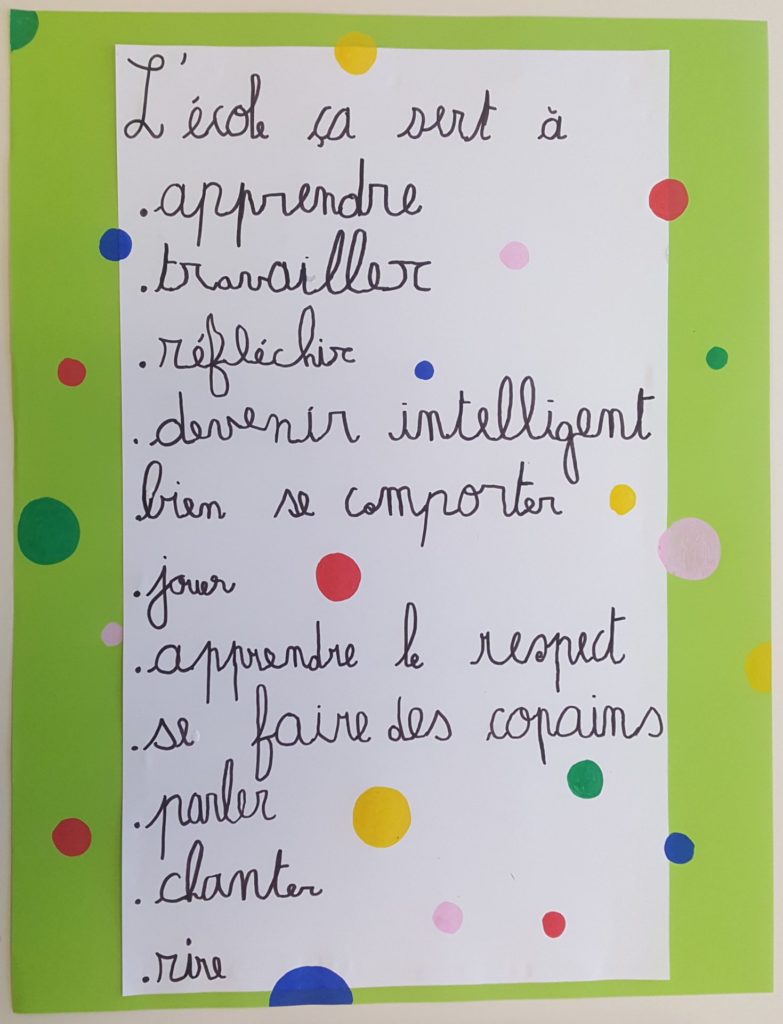 L'école ça sert à
.apprendre
.travailler
.réfléchir
.devenir intelligent
bien se comporter
.jouer
.apprendre le respect
.se faire des copains
.parler
.chanter
.rire